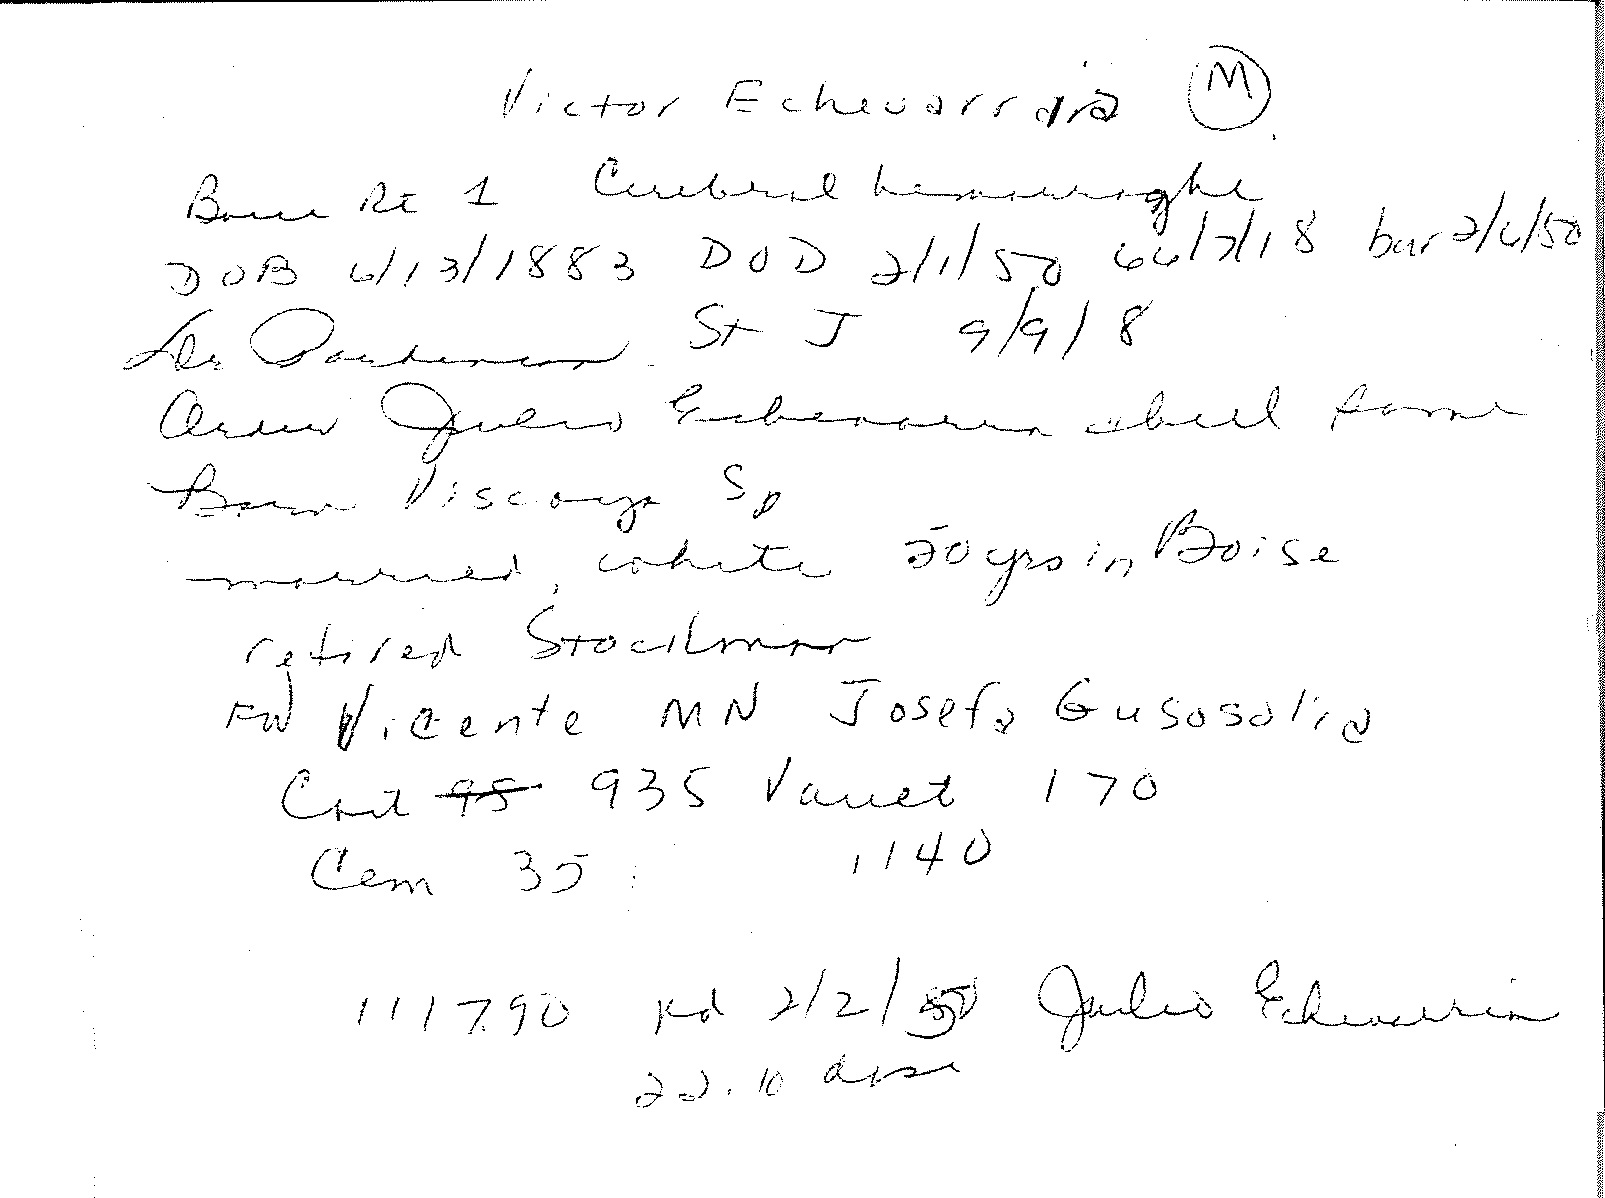 Victor Echevarria M
Boise Rt 1 Cerebral hemouraghe
DOB 6/13/1883 DOD 2/1/50 66/7/18 bur 2/6/50
Dr St J 9/9/18
Order Julio Echevarria chell same
Born Viscaya Sp
married, white 50 yrs in Boise
retired Stockman
FN Vicente MN Josefa Gusosolia
Cost 95 935 Vault 170
Cem 35 1140
1117.90 pd 2/2/50 Julio Echevarria
22.10 disc